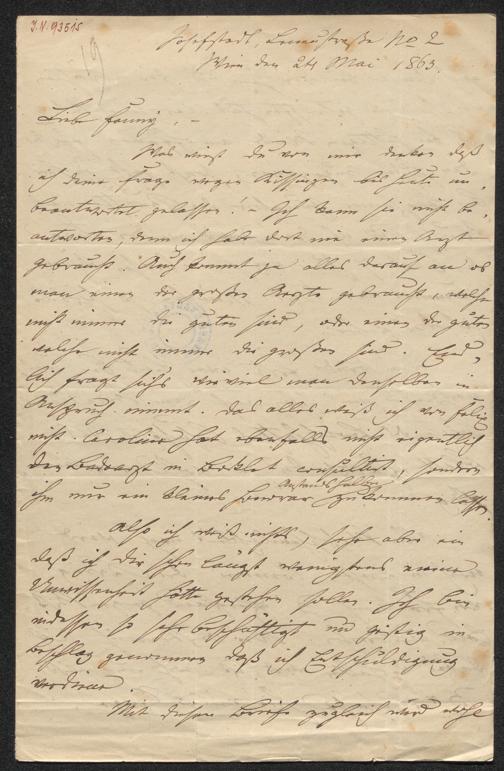 J.N. 93515
19
Josefstadt, Lenaustraße No 2
Wien den 24 Mai 1863.
Liebe Fanny, –
Was wirst du von mir denken daß
ich deine Frage wegen Kissingen bis heute un-
beantwortet gelassen! – Ich kann sie nicht be-
antworten, denn ich habe dort nie einen Arzt
gebraucht. Auch kommt ja alles darauf an ob
man einen der großen Aerzte gebraucht, welche
nicht immer die guten sind, oder einen der guten
welche nicht immer die großen sind. End-
lich fragt sichs wieviel man denselben in
Anspruch nimmt. Das alles weiß ich von Felix
nicht. Caroline hat ebenfalls nicht eigentlich
den Badearzt in Bocklet consultirt, sondern
Anstandshalber
ihm nur ein kleines Honorar zukommen lassen.
Also ich weiß nichts, sehe aber ein
daß ich dir schon längst wenigstens meine
Unwissenheit hätte gestehen sollen. Ich bin
indessen so sehr beschäftigt und geistig in
Beschlag genommen daß ich Entschuldigung
verdiene.
Mit diesem Briefe zugleich wird wohl